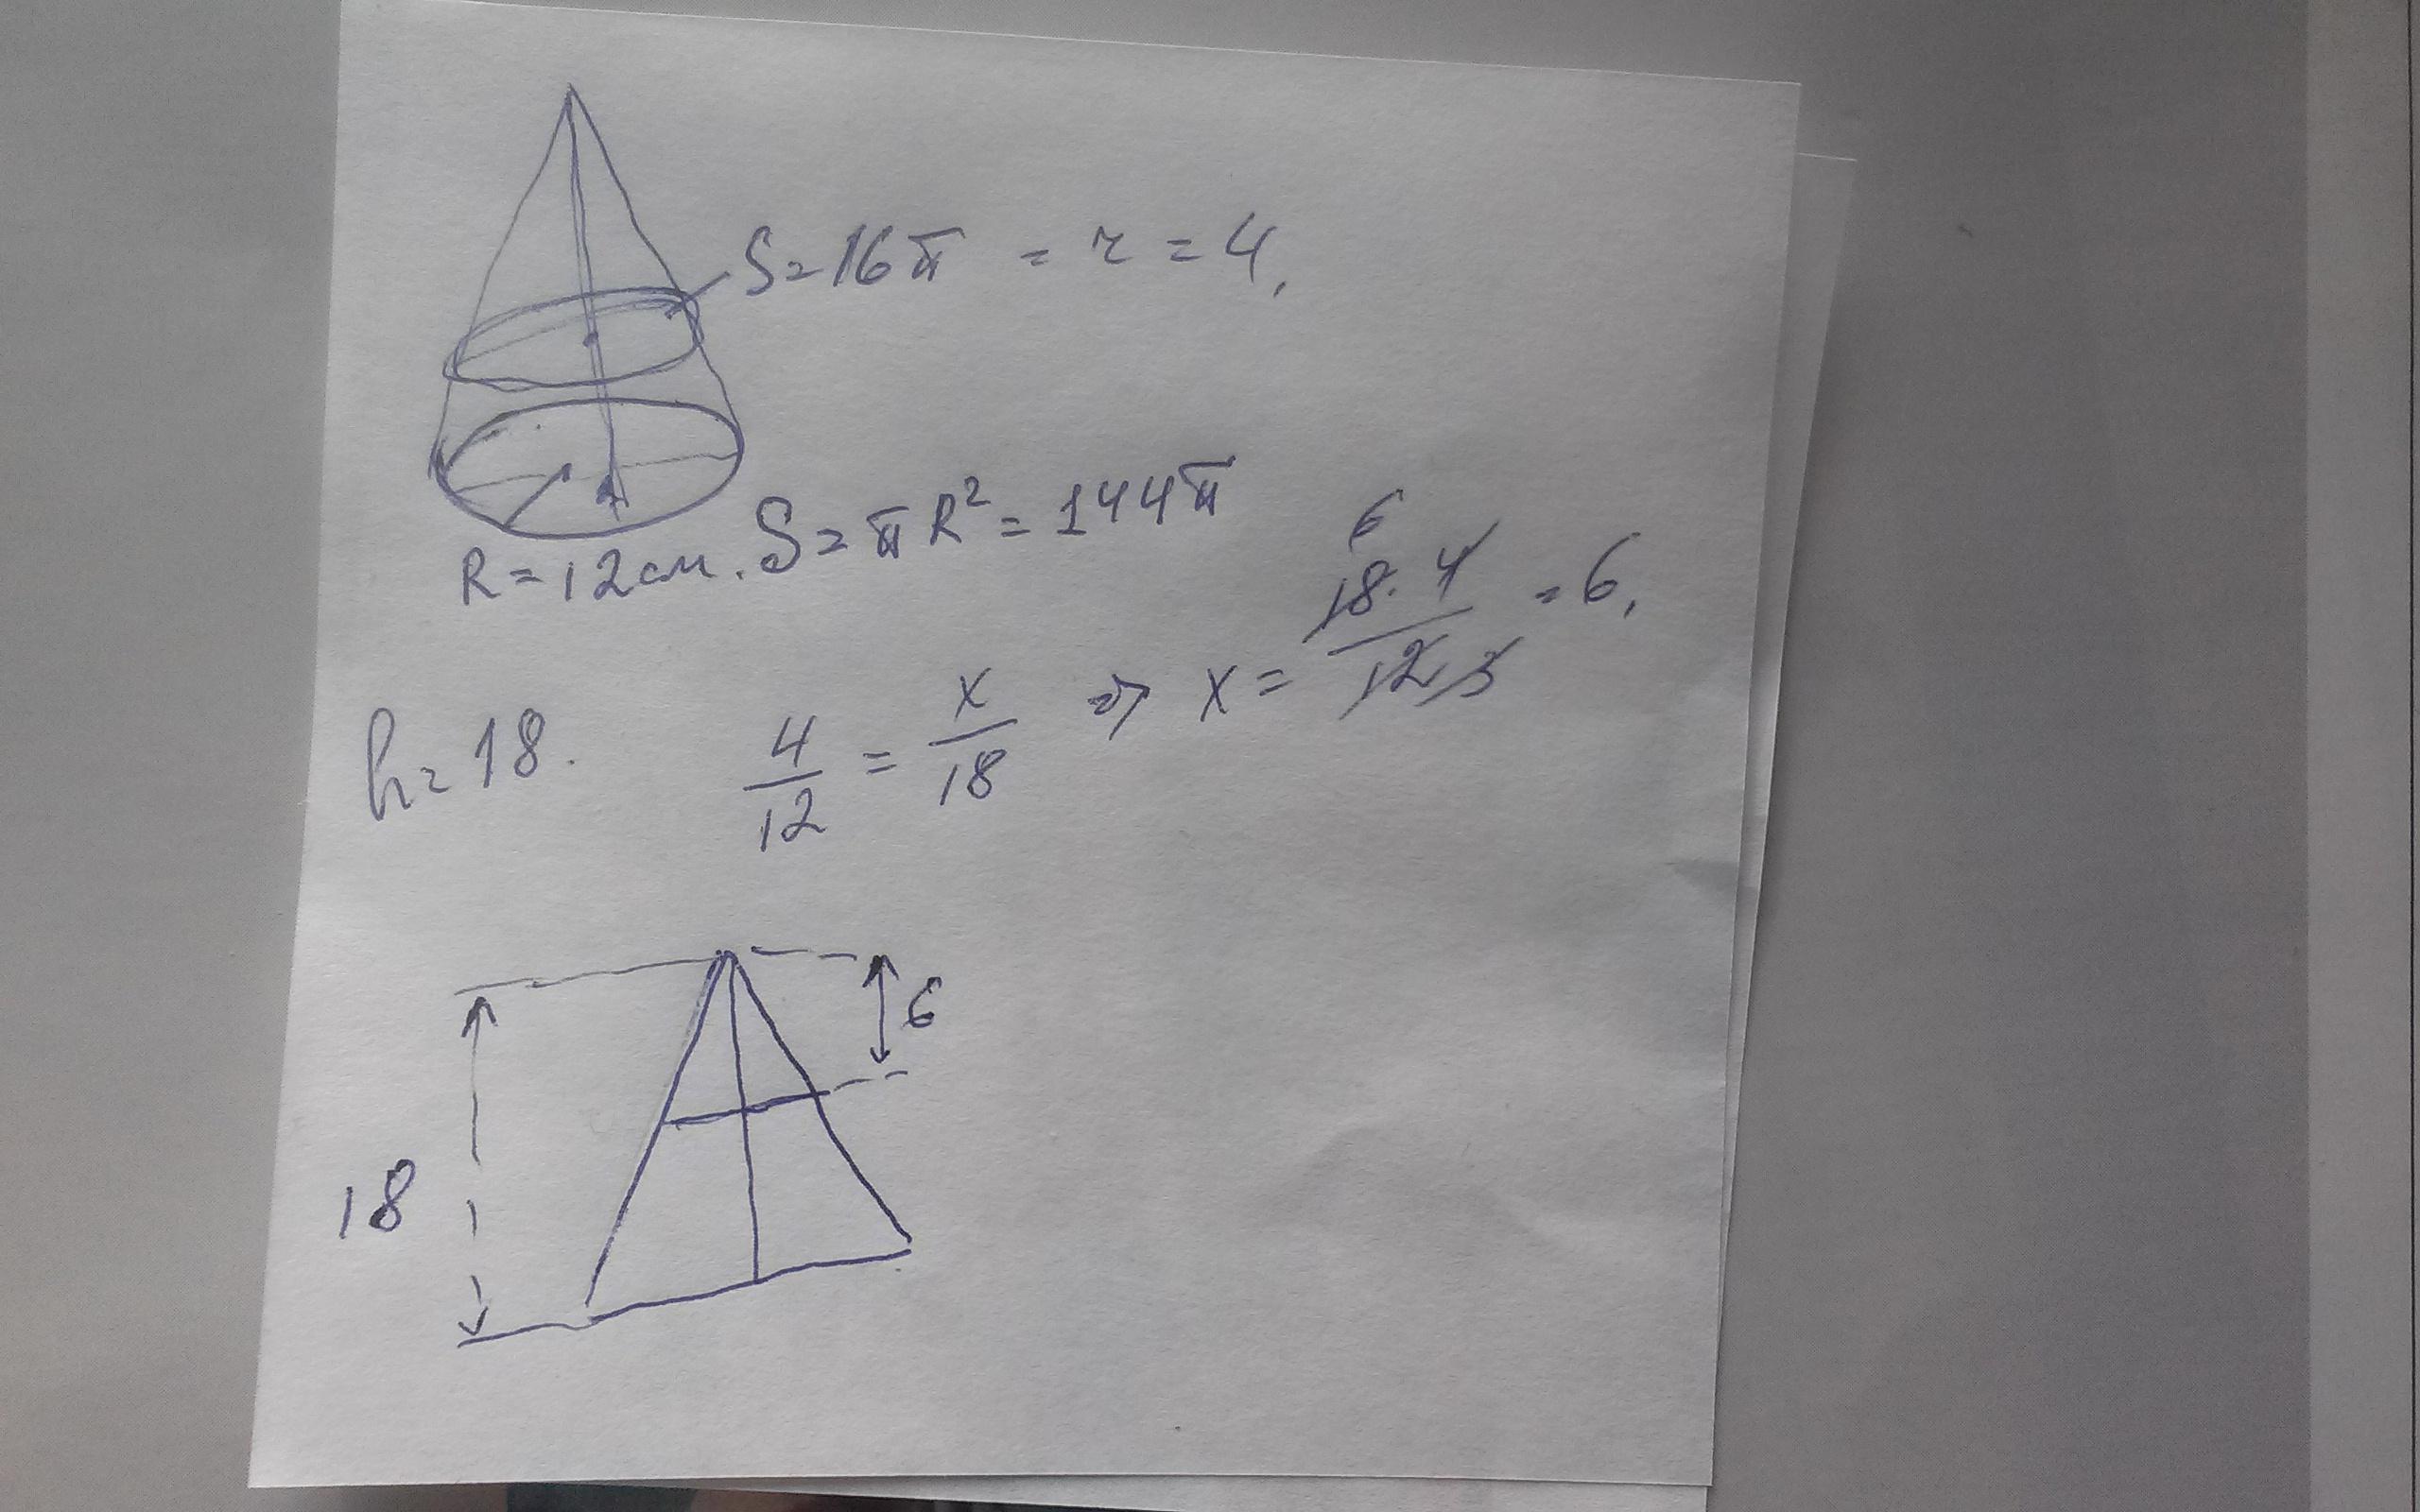 S=16π = r = 4,
R=12см. S=πR²=144π
h=18. 4/12 = x/18 ⇒ x = 18·4/12 = 6,
6
3
6
18